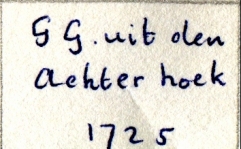 G G. uit den
Achter hoek
1725